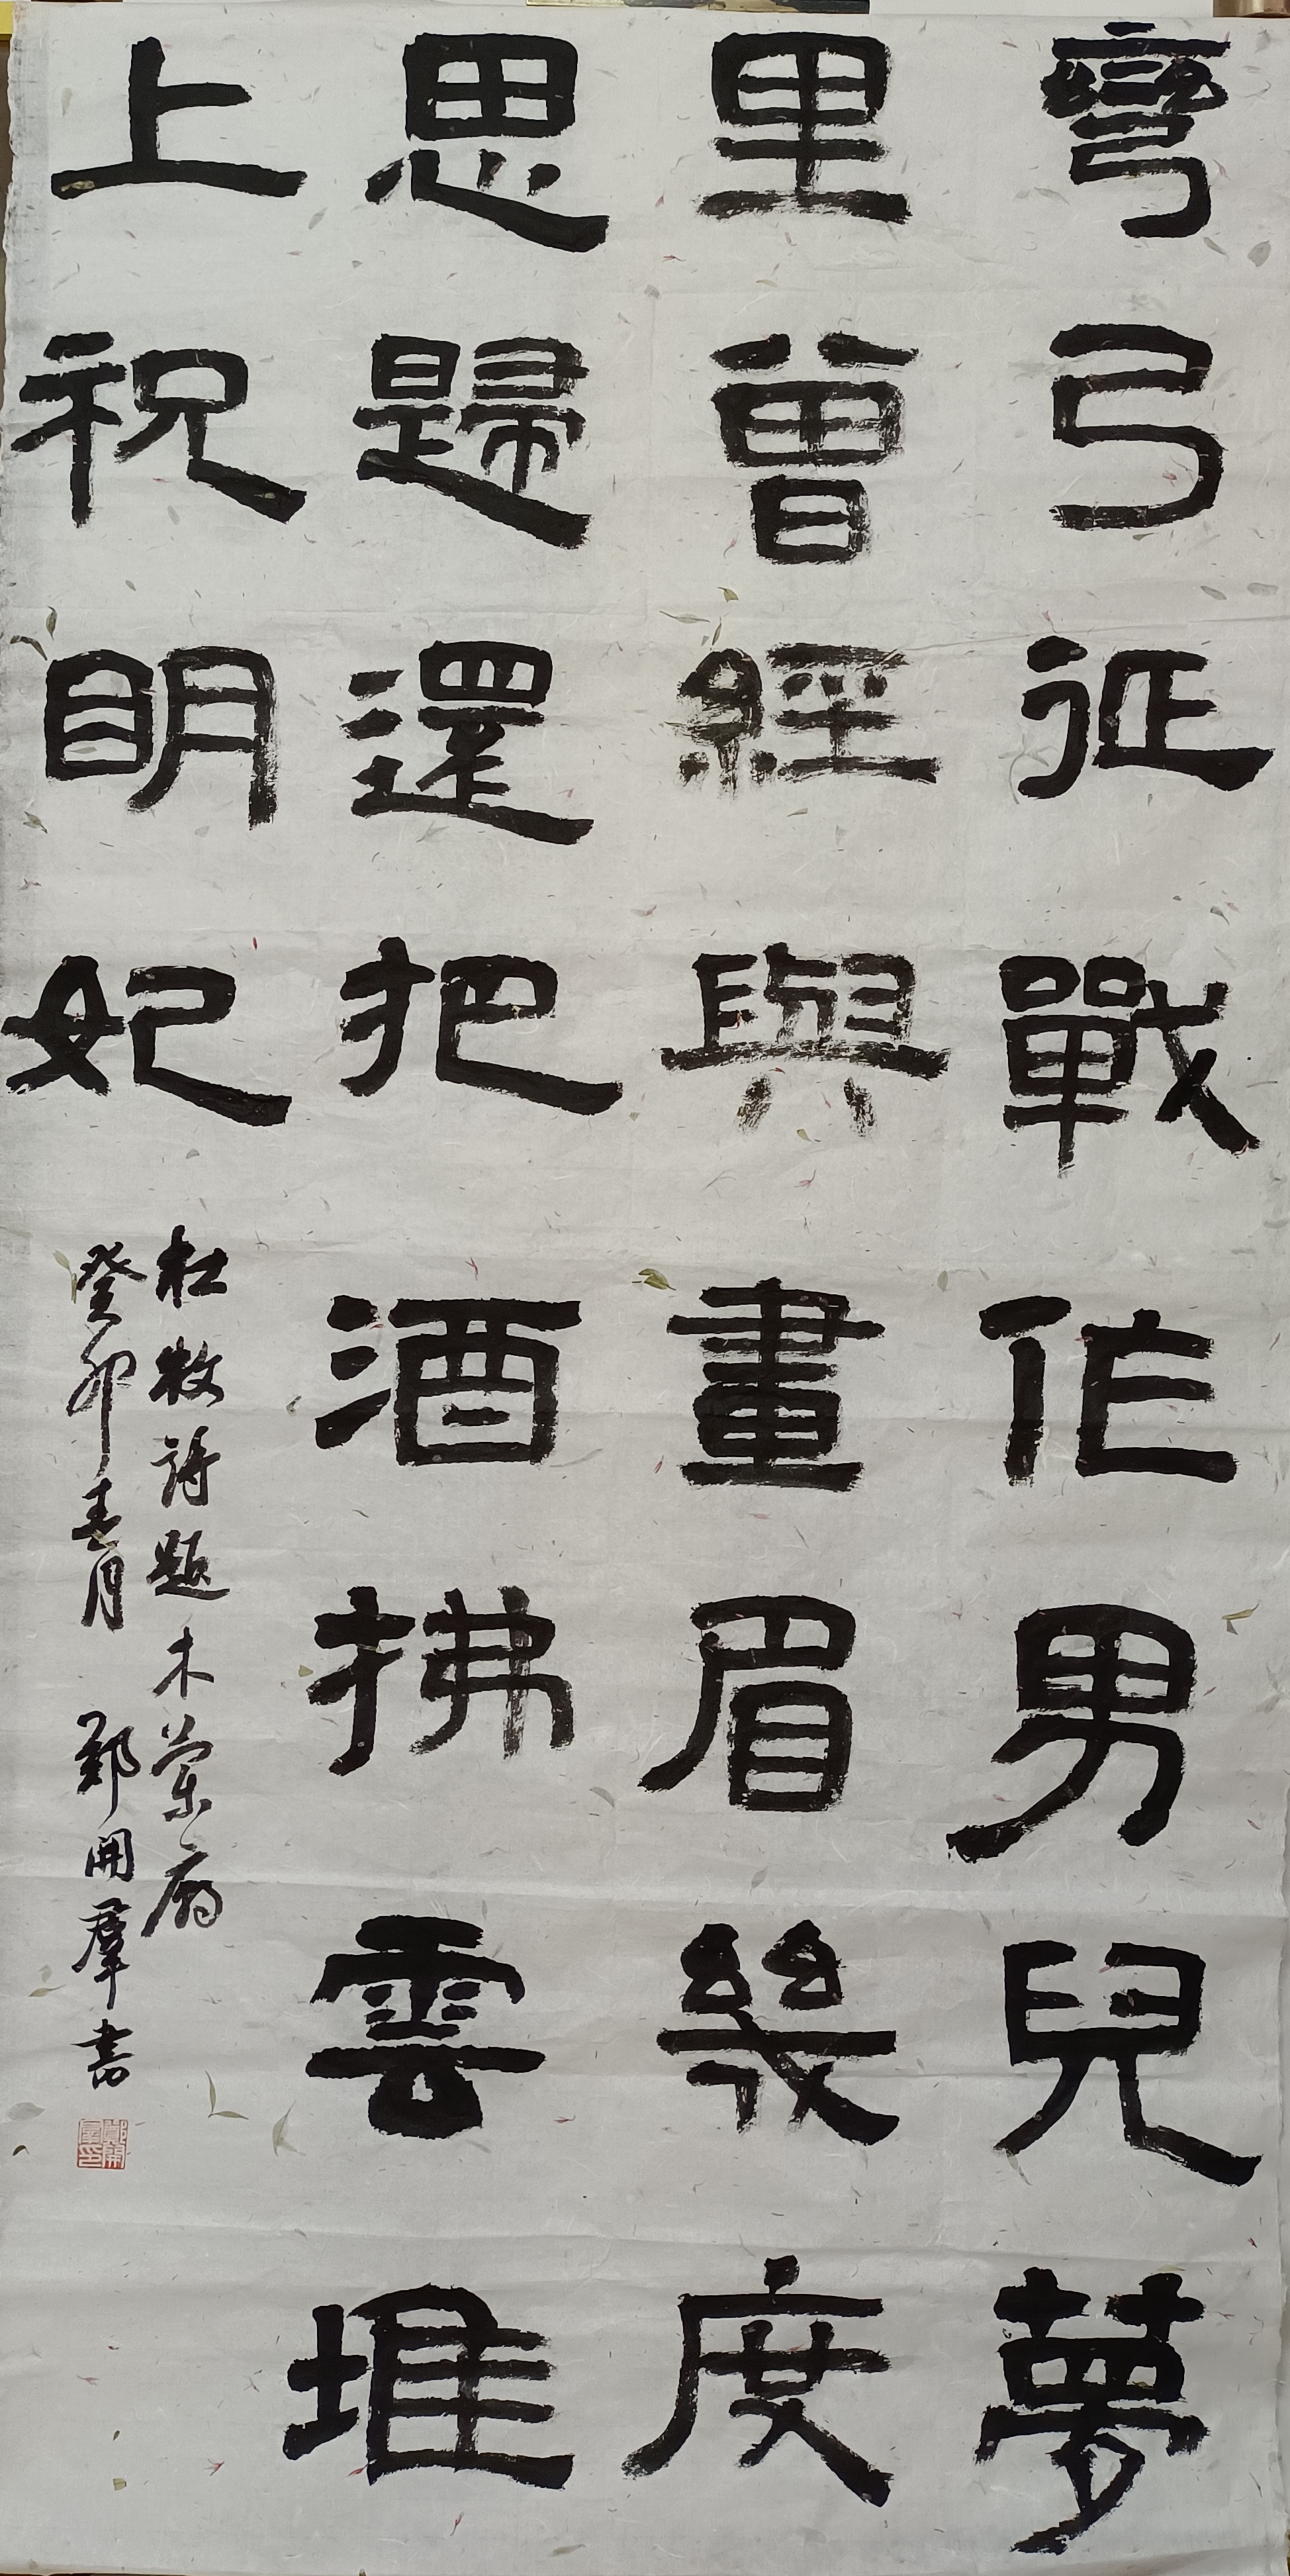 彎弓征戰作男兒夢
里曾經與畫眉幾度
思歸還把酒拂雲堆
上祝明妃
杜牧詩題木蘭廟
癸卯春月 鄭開羣書
鄭開羣印